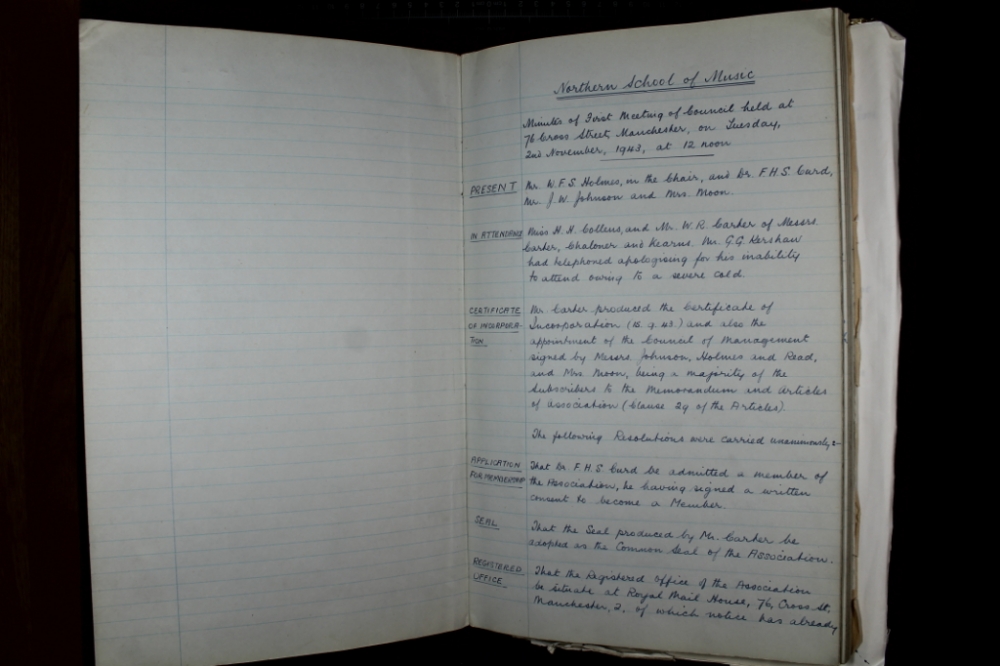 Northern School of Music
Minutes of First Meeting of Council held at
76 Cross Street, Manchester, on Tuesday,
2nd November, 1943, at 12 noon
PRESENT
Mr. W.F.S. Holmes, in the Chair, and Dr. F.H.S. Curd,
Mr. J.W. Johnson and Mrs. Moon.
IN ATTENDANCE
Miss H.H. Collens, and Mr. W.R. Carter of Messrs.
Carter, Chaloner and Kearns. Mr. G.G. Kershaw
had telephoned apologising for his inability
to attend owing to a severe cold.
CERTIFICATE
OF INCORPORA-
TION.
Mr. Carter produced the Certificate of
Incorporation (15. 9. 43.) and also the
appointment of the Council of Management
signed by Messrs. Johnson, Holmes and Read,
and Mrs Moon, being a majority of the
Subscribers to the Memorandum and Articles
of Association (Clause 29 of the Articles).
The following Resolutions were carried unanimously:-
APPLICATION
FOR MEMBERSHIP
That Dr. F.H.S. Curd be admitted a member of
the Association, he having signed a written
consent to become a Member.
SEAL
That the Seal produced by Mr. Carter be
adopted as the Common Seal of the Association.
REGISTERED
OFFICE.
That the Registered Office of the Association
be situate at Royal Mail House, 76, Cross St.
Manchester, 2. of which notice has already